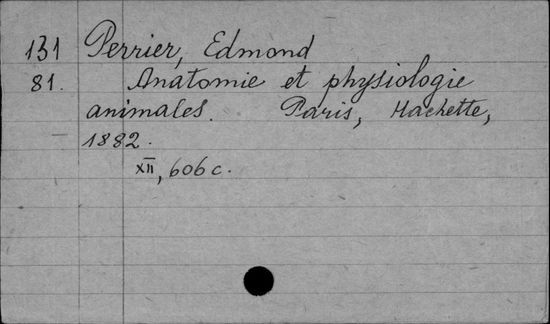 131 Perrier, Edmond
81. Anatomie et physiologie
animales. Paris, Hachette,
1882.
XII, 606 c.